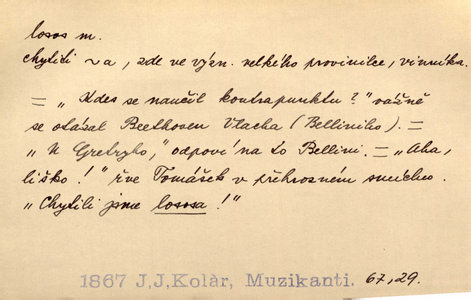 losos m.
chytiti ~a, zde ve význ. velkého provinilce, viníka.
= „Kdes se naučil kontrapunktu?" vážně
se otázal Beethoven Vlacha (Belliniho). =
„U Gretryho," odpoví na to Bellini. = „Aha,
liško!" řve Tomášek v přehrozném smíchu.
„Chytili jsme lososa!"
1867 J,J,Kolàr, Muzikanti. 67,29.